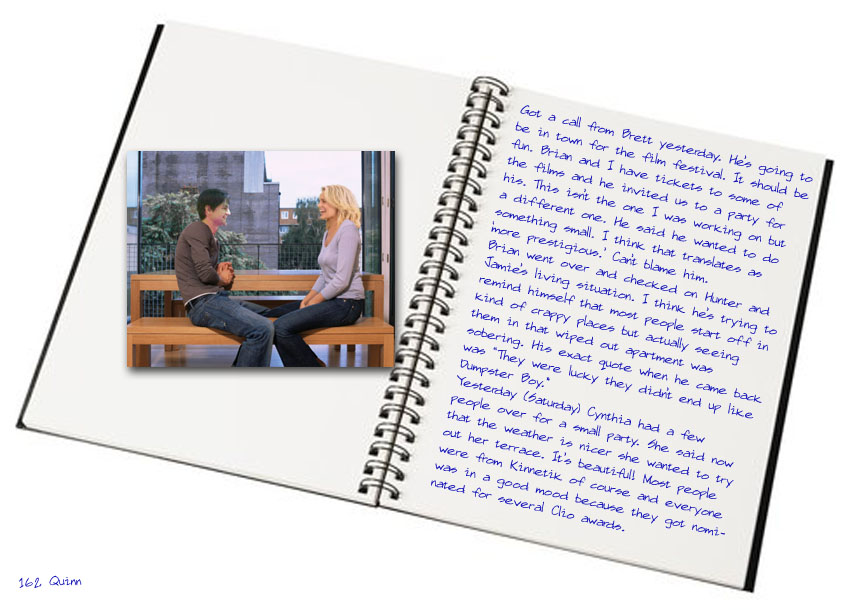 Got a call from Brett yesterday. He's going to
be in town for the film festival. It should be
fun. Brian and I have tickets to some of
the films and he invited us to a party for
his. This isn't the one I was working on but
a different one. He said he wanted to do
something small. I think that translates as
'more prestigious.' Can't blame him.
Brian went over and checked on Hunter and
Jamie's living situation. I think he's trying to
remind himself that most people start off in
kind of crappy places but actually seeing
them in that wiped out apartment was
sobering. His exact quote when he came back
was "They were lucky they didn't end up like
Dumpster Boy."
Yesterday (Saturday) Cynthia had a few
people over for a small party. She said now
that the weather is nicer she wanted to try
out her terrace. It's beautiful! Most people
were from Kinnetik of course and everyone
was in a good mood because they got nomi-
nated for several Clio awards.
162 Quinn